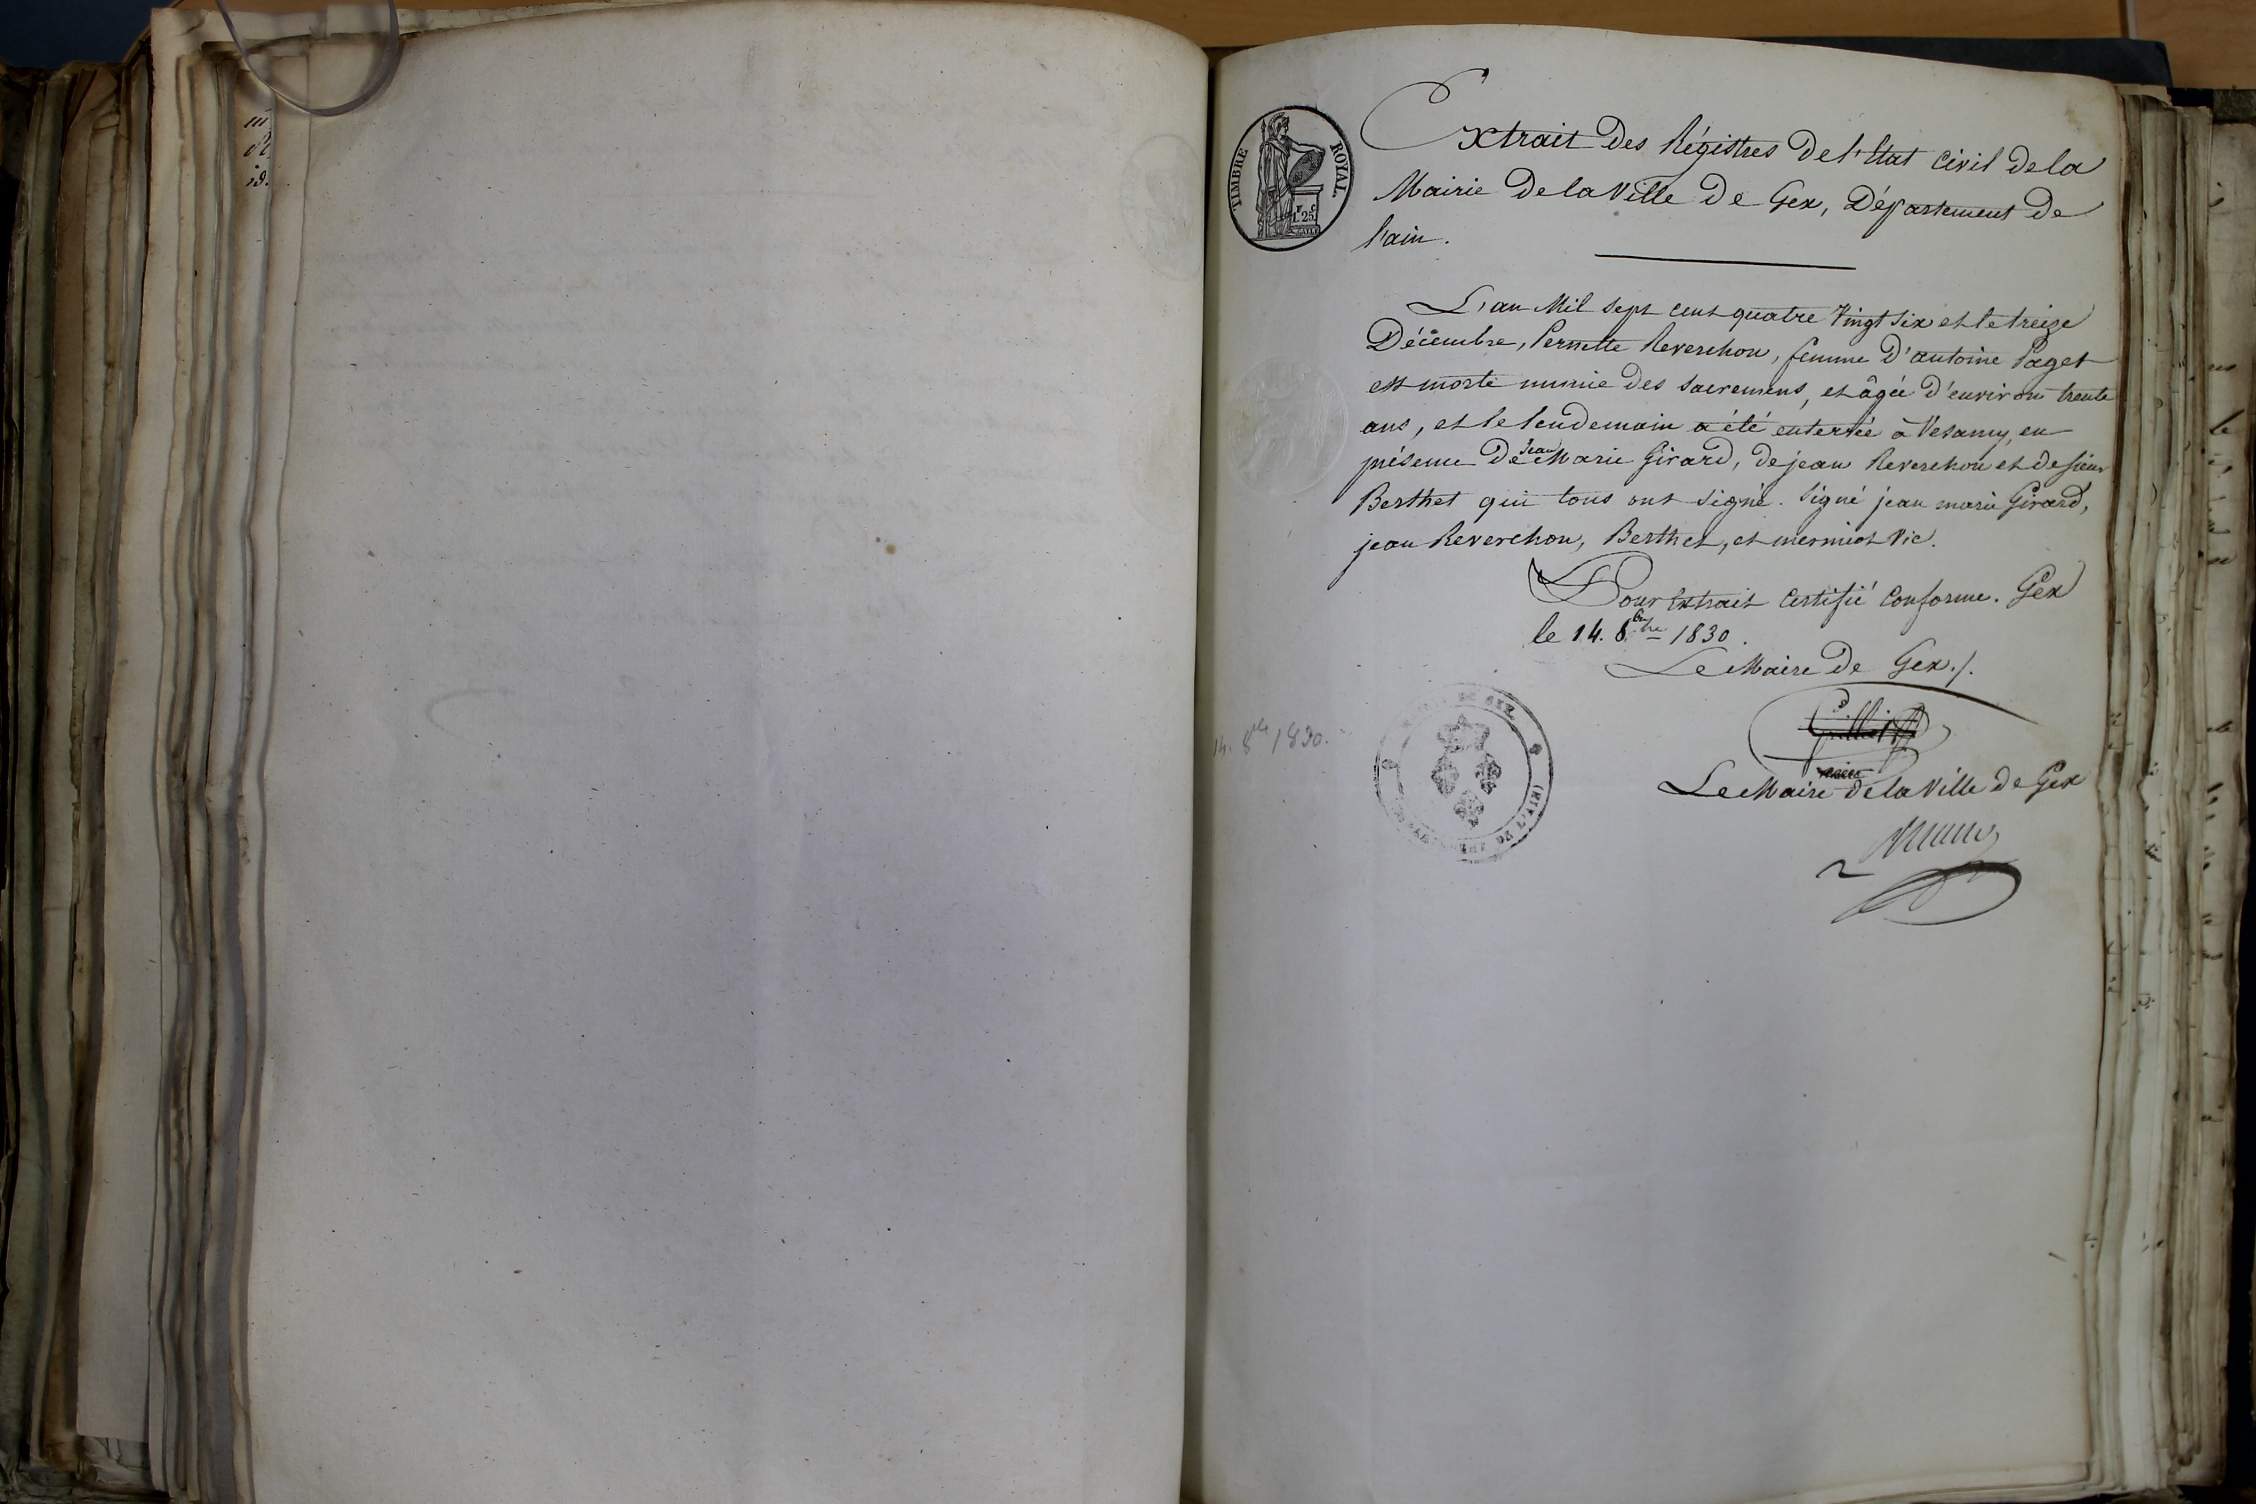 TIMBRE ROYAL
1. 25
Extrait Des Régistres De l'Etat civil de la
Mairie De la Ville De Gex, Département De
l'ain.
L'an Mil sept cent quatre Vingt six et le treize
Décembre, Pernette Reverchon, femme D'antoine Paget
est morte munie des sacremens, et âgée d'environ trente
ans, et le lendemain a été enterrée à Vesancy, en
présence De Jean Marie Girard, de jean Reverchon et de sieur
Berthet qui tous ont signé. Signé jean marie Girard,
jean Reverchon, Berthet, et mermiot Vic.
Pour Extrait Certifié Conforme. Gex
le 14. 8bre 1830.
Le Maire De Gex./.
14. 8bre 1830.
Le Maire de la Ville de Gex